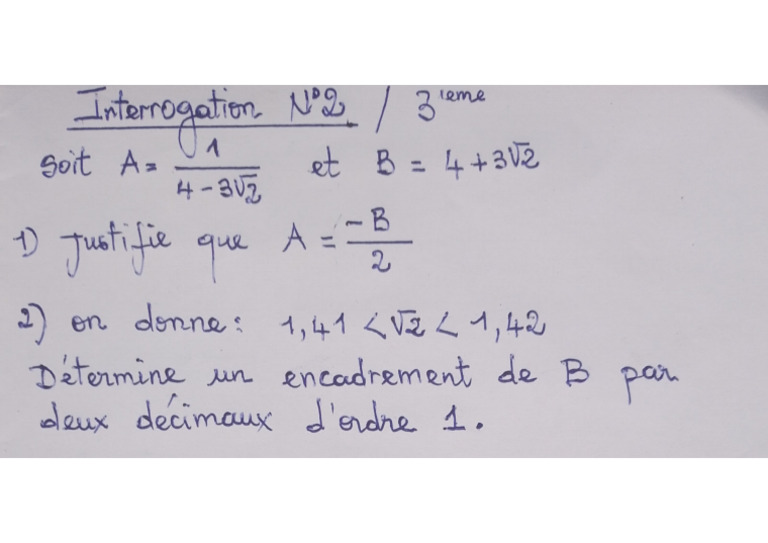 Interrogation N°2 / 3ieme
soit A = 1/(4 - 3√2) et B = 4 + 3√2
1) Justifie que A = -B/2
2) on donne : 1,41 < √2 < 1,42
Détermine un encadrement de B par
deux décimaux d'ordre 1.